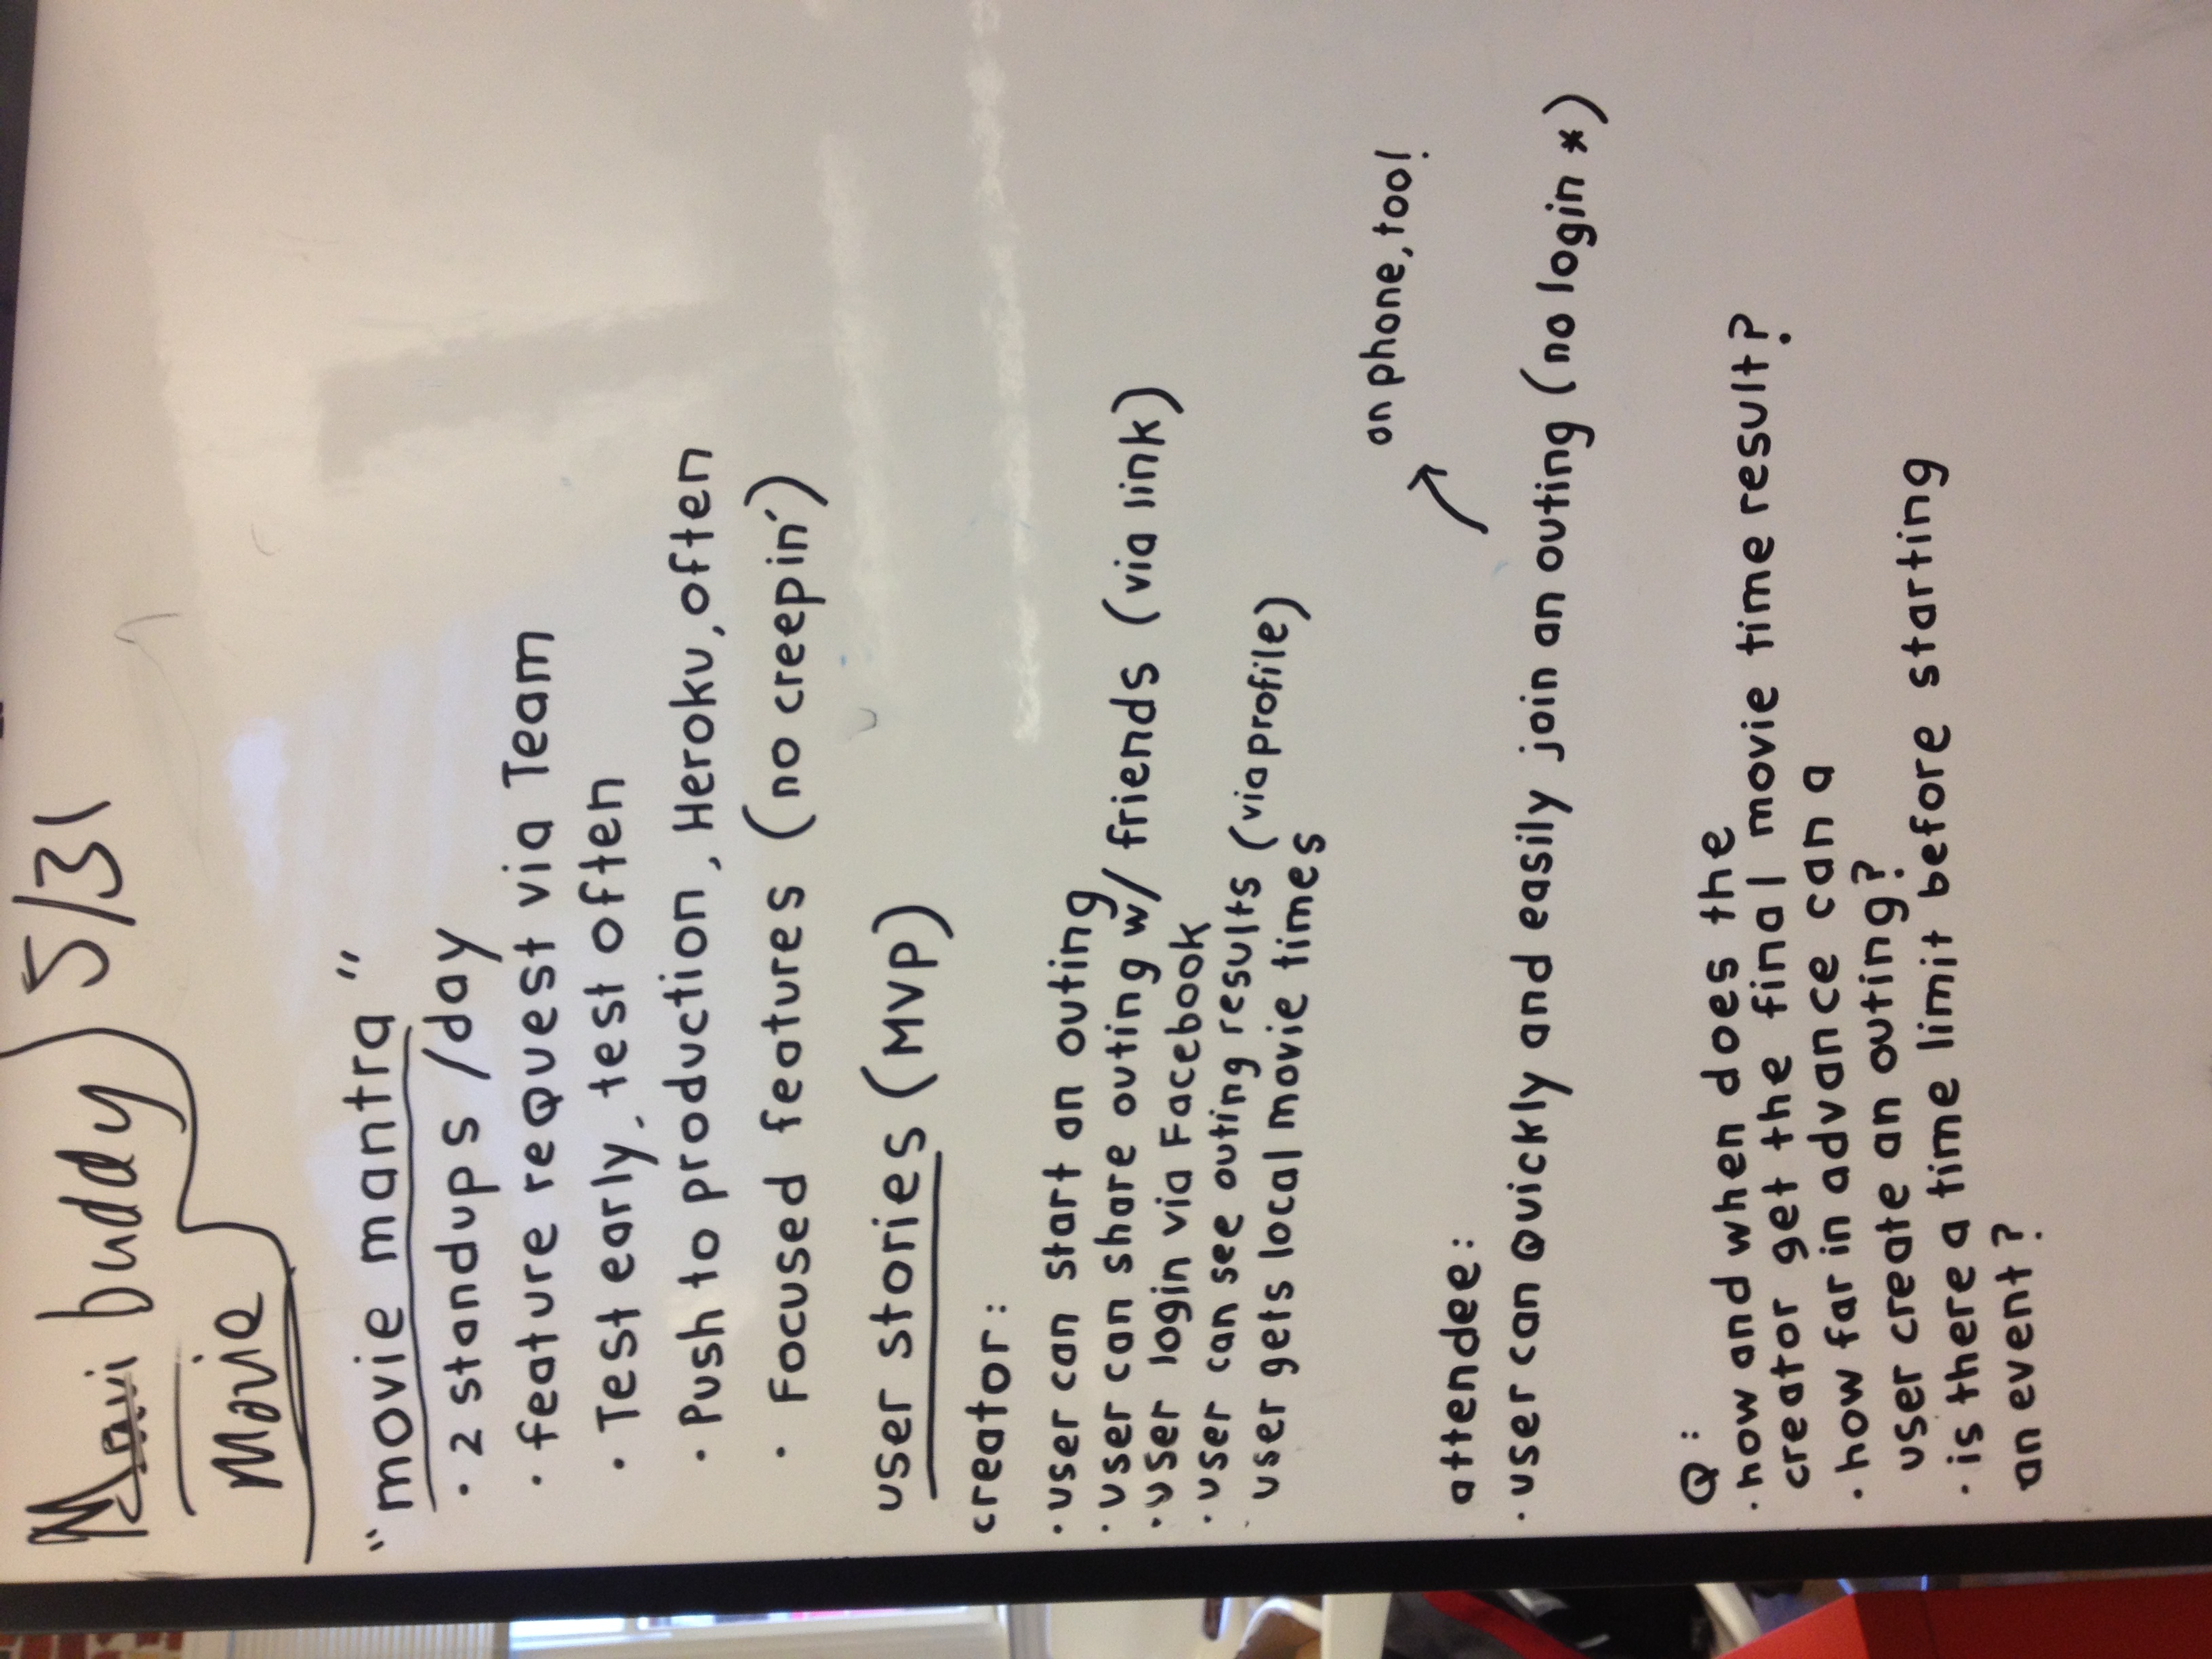 buddy 5/31
Movie
"movie mantra"
· 2 standups /day
· feature request via Team
· Test early, test often
· Push to production, Heroku, often
· Focused features (no creepin')
user stories (MVP)
creator:
· user can start an outing
· user can share outing w/ friends (via link)
· user login via Facebook
· user can see outing results (via profile)
· user gets local movie times
on phone, too!
attendee:
· user can quickly and easily join an outing (no login *)
Q:
· how and when does the
creator get the final movie time result?
· how far in advance can a
user create an outing?
· is there a time limit before starting
an event?